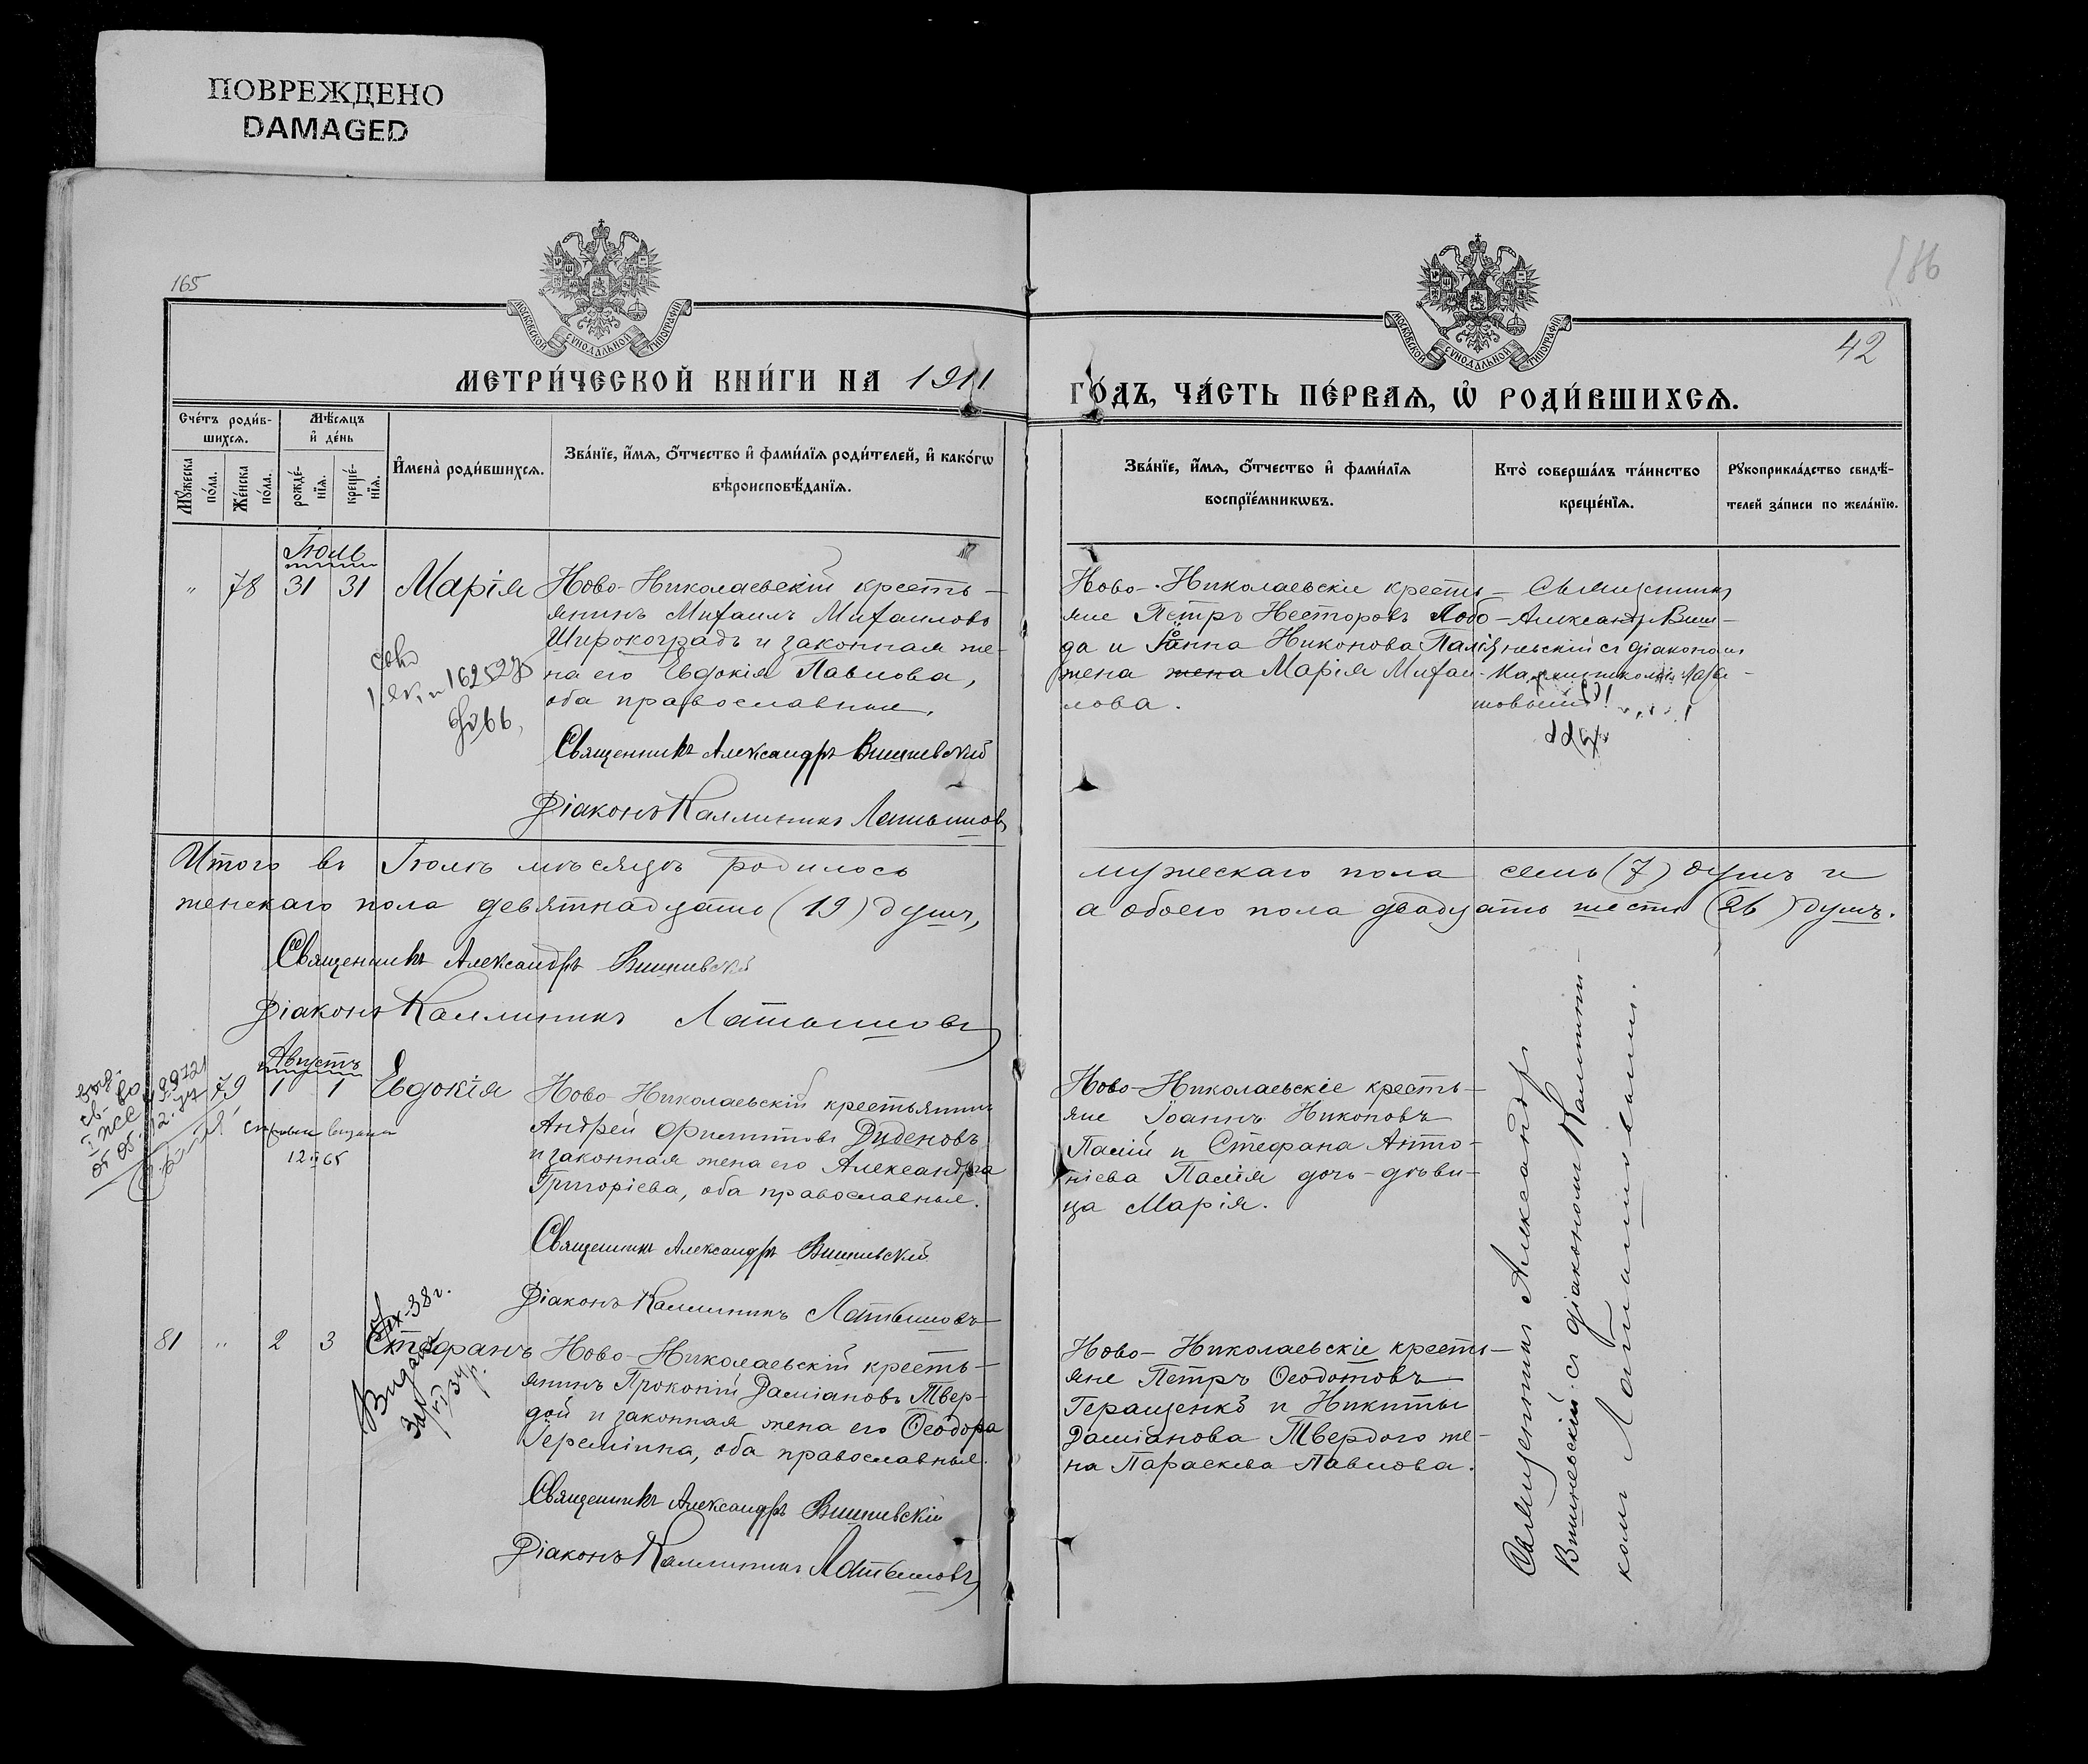 ПОВРЕЖДЕНО
DAMAGED
165
186
42
МОСКОВСКОЙ СУНОДАЛЬНОЙ ТИПОГРАФІИ
МОСКОВСКОЙ СУНОДАЛЬНОЙ ТИПОГРАФІИ
МЕТРИ́ЧЕСКОЙ КНИ́ГИ НА 1911
ГО́ДЪ, ЧА́СТЬ ПЕ́РВАѦ, Ѡ҆ РОДИ́ВШИХСѦ.
Сче́тъ роди́в-
шихсѧ.
Мꙋ́жеска
по́ла.
Же́нска
по́ла.
Мѣ́сѧцъ
и҆ де́нь
рожде́-
нїѧ.
креще́-
нїѧ.
И҆мена̀ роди́вшихсѧ.
Зва́нїе, и҆́мѧ, ѻ҆́тчество и҆ фами́лїѧ роди́телей, и҆ како́гѡ
вѣроисповѣ́данїѧ.
Зва́нїе, и҆́мѧ, ѻ҆́тчество и҆ фами́лїѧ
воспрїе́мникѡвъ.
Кто̀ соверша́лъ та́инство
креще́нїѧ.
Рꙋкоприкла́дство свидѣ́-
телей за́писи по жела́нїю.
Іюль
" 78 31 31 Марія
Ново-Николаевскій кресть-
янинъ Михаилъ Михаиловъ
Широкоградъ и законная же-
на его Евдокія Павлова,
оба православные.
Священникъ Александръ Вишневскій
Діаконъ Каллиникъ Латышовъ
Ново-Николаевскіе кресть-
яне Петръ Несторовъ Лобо-
да и Іоанна Никонова Палія
жена жена Марія Михаи-
лова.
Священникъ
Александръ Виш-
невскій съ діакономъ
Каллиникомъ Латы-
шовымъ
Итого въ Іюлѣ мѣсяцѣ родилось
мужескаго пола семь (7) душъ и
женскаго пола девятнадцать (19) душъ,
а обоего пола двадцать шесть (26) душъ.
Священникъ Александръ Вишневскій
Діаконъ Каллиникъ Латышовъ
Августъ
79 1 1 Евдокія
12 65
Ново-Николаевскій крестьянинъ
Андрей Филиповъ Диденовъ
и законная жена его Александра
Григоріева, оба православные.
Священникъ Александръ Вишневскій
Діаконъ Каллиникъ Латышовъ
Ново-Николаевскіе кресть-
яне Іоаннъ Никоновъ
Палій и Стефана Анто-
ніева Палія дочь-дѣви-
ца Марія.
81 " 2 3 Стефанъ
Ново-Николаевскій кресть-
янинъ Прокопій Даміановъ Твер-
дой и законная жена его Ѳеодора
Іереміина, оба православные.
Священникъ Александръ Вишневскій
Діаконъ Каллиникъ Латышовъ
Ново-Николаевскіе кресть-
яне Петръ Ѳеодотовъ
Геращенко и Никиты
Даміанова Твердого же-
на Параскева Павлова.
Священникъ Александръ
Вишневскій съ діакономъ Каллини-
комъ Латышовымъ.